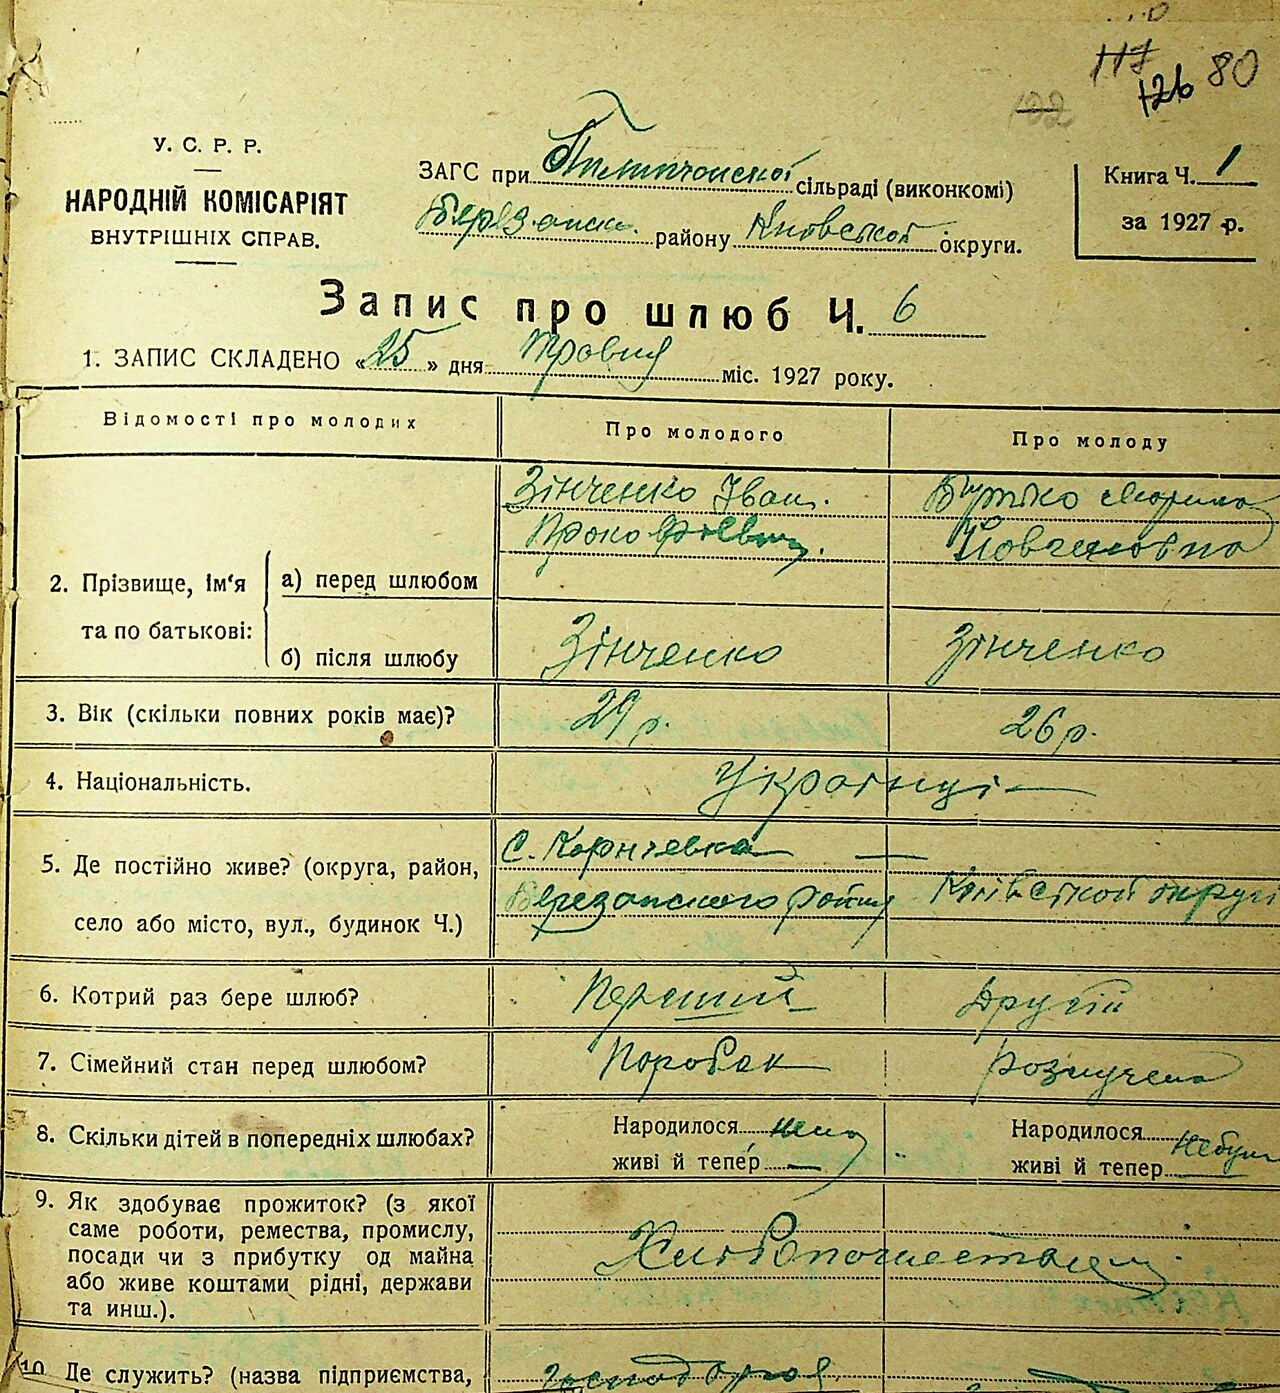 117
126 80
122
У. С. Р. Р.
НАРОДНІЙ КОМІСАРІЯТ
ВНУТРІШНІХ СПРАВ.
ЗАГС при сільраді (виконкомі)
Березанськ. району Київської округи.
Книга Ч. 1
за 1927 р.
Запис про шлюб Ч. 6
1. ЗАПИС СКЛАДЕНО «25» дня Травня міс. 1927 року.
Відомості про молодих
Про молодого
Про молоду
Зінченко Іван
Прокофієвич
Бутко Марина
2. Прізвище, ім'я та по батькові:
а) перед шлюбом
б) після шлюбу
Зінченко
Зінченко
3. Вік (скільки повних років має)?
29 р.
26 р.
4. Національність.
Українці
5. Де постійно живе? (округа, район,
село або місто, вул., будинок Ч.)
С. Корніевка
Березанского району Київської округи
6. Котрий раз бере шлюб?
Перший
Другий
7. Сімейний стан перед шлюбом?
Поробок
розлучена
8. Скільки дітей в попередніх шлюбах?
Народилося нема
живі й тепер —
Народилося
живі й тепер
9. Як здобуває прожиток? (з якої
саме роботи, ремества, промислу,
посади чи з прибутку од майна
або живе коштами рідні, держави
та инш.).
10. Де служить? (назва підприємства,